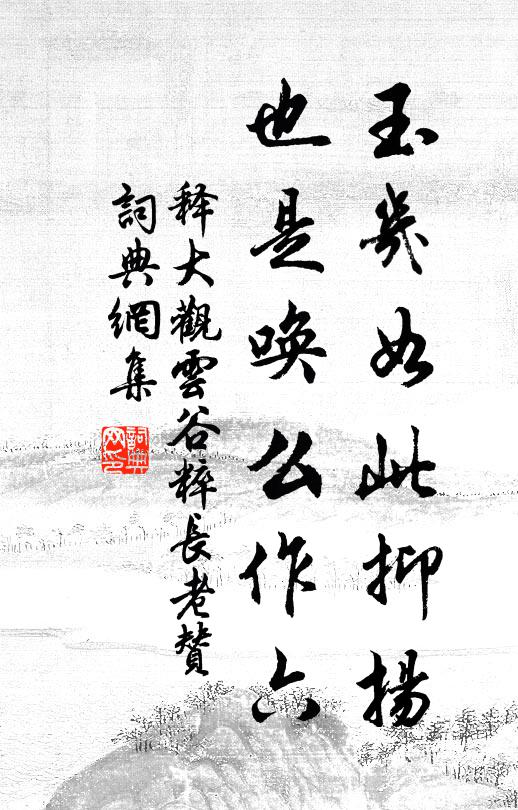 玉幾如此抑揚
也是喚么作六
释大觀雲谷粹長老贊
詞典網集
詞典网印